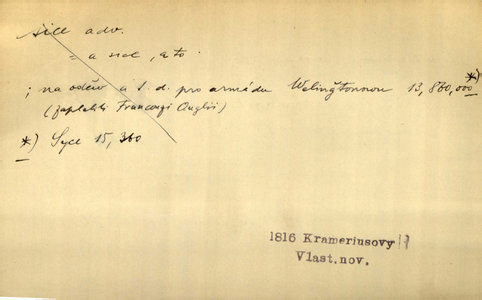 sice adv.
= a sice, a to.
; na oděv a t. d. pro armádu Welingtonnou 13,860,000 *)
(zaplatili Francouzi Anglii)
*) Syce 15, 360
1816 Krameriusovy
Vlast.nov.